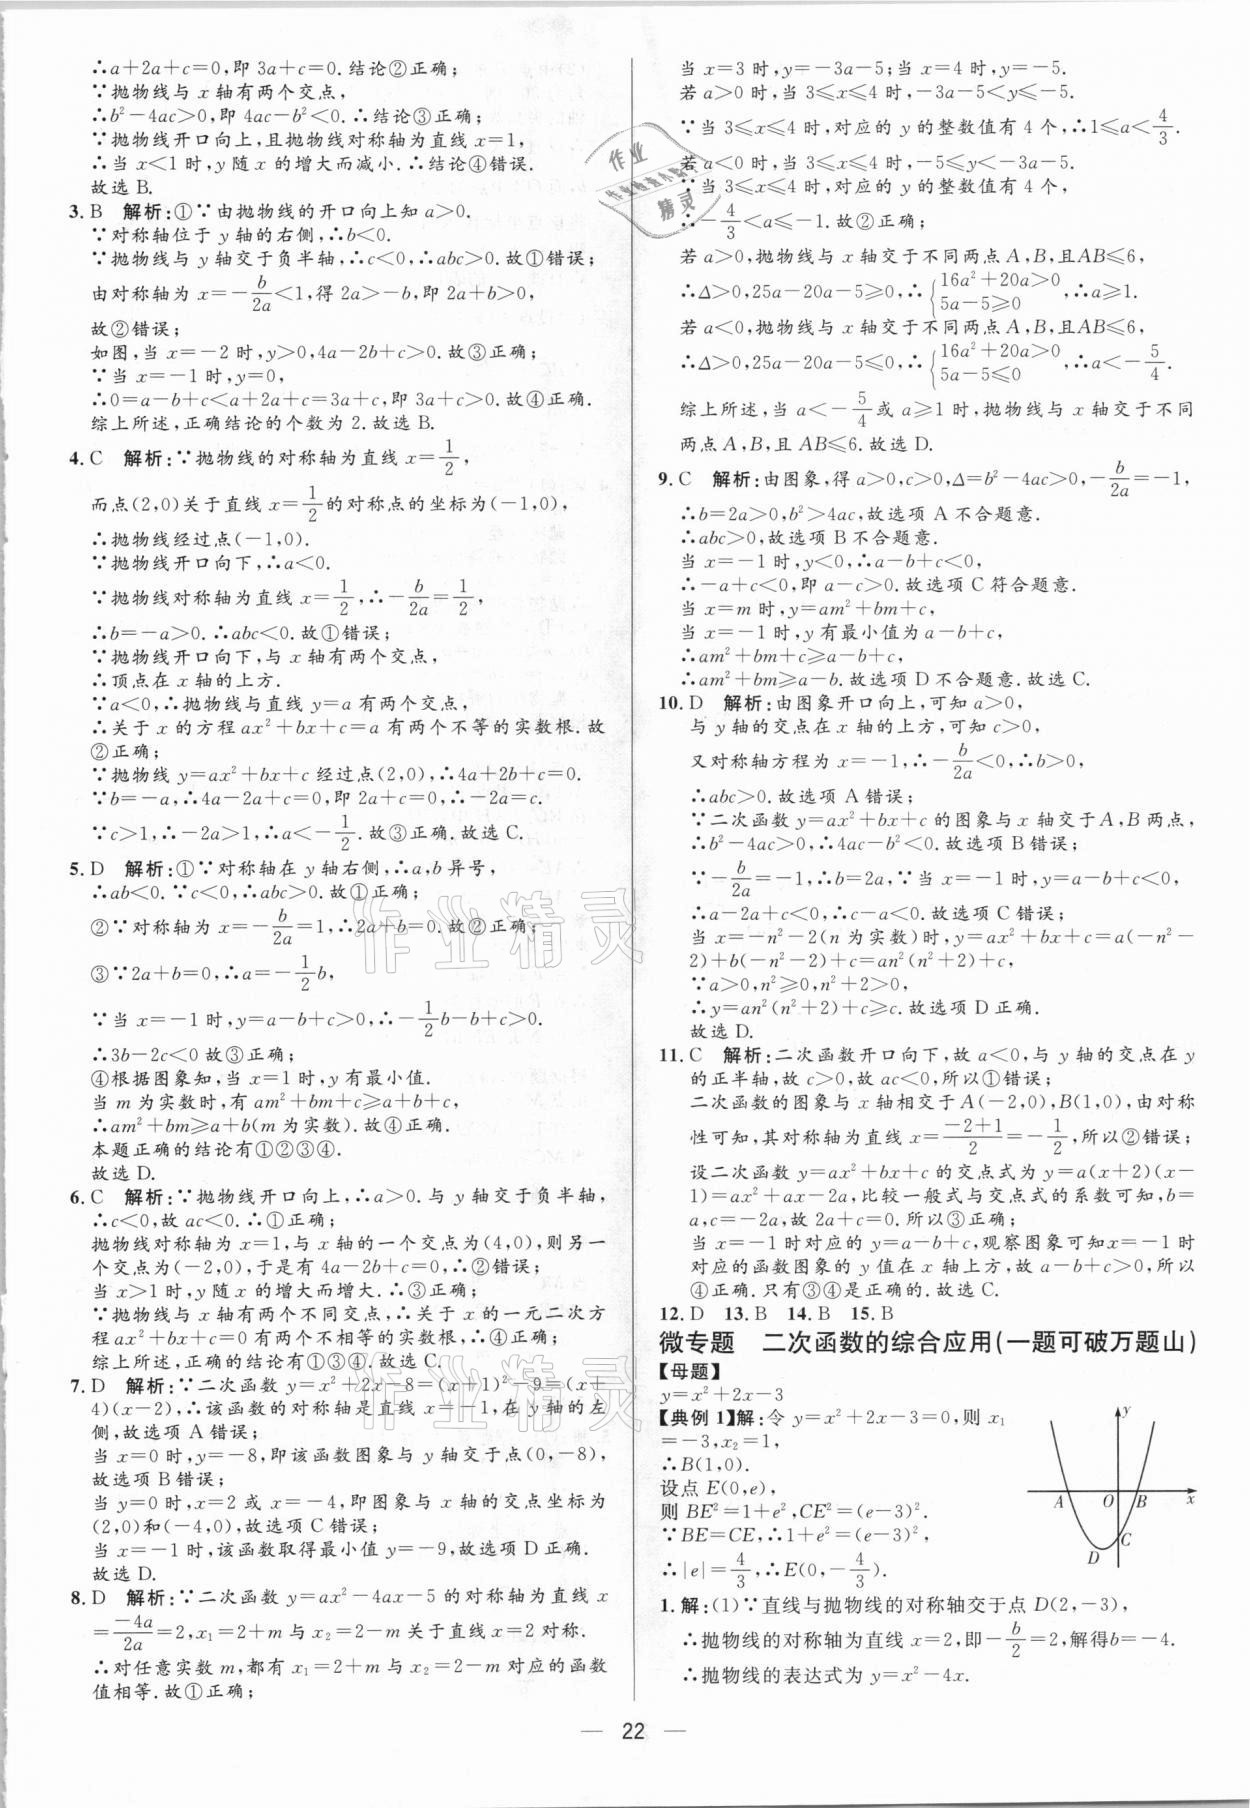 ∴a+2a+c=0,即 3a+c=0.结论②正确;
∵抛物线与 x 轴有两个交点,
∴b²-4ac>0,即 4ac-b²<0.∴结论③正确;
∵抛物线开口向上,且抛物线对称轴为直线 x=1,
∴当 x<1 时,y 随 x 的增大而减小.∴结论④错误.
故选 B.
3. B 解析:①∵由抛物线的开口向上知 a>0.
∵对称轴位于 y 轴的右侧,∴b<0.
∵抛物线与 y 轴交于负半轴,∴c<0,∴abc>0.故①错误;
由对称轴为 x=-b/2a<1,得 2a>-b,即 2a+b>0,
故②错误;
如图,当 x=-2 时,y>0,4a-2b+c>0.故③正确;
∵当 x=-1 时,y=0,
∴0=a-b+c<a+2a+c=3a+c,即 3a+c>0.故④正确.
综上所述,正确结论的个数为 2.故选 B.
4. C 解析:∵抛物线的对称轴为直线 x=1/2,
而点(2,0)关于直线 x=1/2的对称点的坐标为(-1,0),
∴抛物线经过点(-1,0).
∵抛物线开口向下,∴a<0.
∵抛物线对称轴为直线 x=1/2,∴-b/2a=1/2,
∴b=-a>0.∴abc<0.故①错误;
∵抛物线开口向下,与 x 轴有两个交点,
∴顶点在 x 轴的上方.
∵a<0,∴抛物线与直线 y=a 有两个交点,
∴关于 x 的方程 ax²+bx+c=a 有两个不等的实数根.故
②正确;
∵抛物线 y=ax²+bx+c 经过点(2,0),∴4a+2b+c=0.
∵b=-a,∴4a-2a+c=0,即 2a+c=0,∴-2a=c.
∵c>1,∴-2a>1,∴a<-1/2.故③正确.故选 C.
5. D 解析:①∵对称轴在 y 轴右侧,∴a,b 异号,
∴ab<0.∵c<0,∴abc>0.故①正确;
②∵对称轴为 x=-b/2a=1,∴2a+b=0.故②正确;
③∵2a+b=0,∴a=-1/2b,
∵当 x=-1 时,y=a-b+c>0,∴-1/2b-b+c>0.
∴3b-2c<0 故③正确;
④根据图象知,当 x=1 时,y 有最小值.
当 m 为实数时,有 am²+bm+c≥a+b+c,
∴am²+bm≥a+b(m 为实数).故④正确.
本题正确的结论有①②③④.
故选 D.
6. C 解析:∵抛物线开口向上,∴a>0.与 y 轴交于负半轴,
∴c<0,故 ac<0.∴①正确;
抛物线对称轴为 x=1,与 x 轴的一个交点为(4,0),则另一
个交点为(-2,0),于是有 4a-2b+c=0,∴②错误;
当 x>1 时,y 随 x 的增大而增大.∴③正确;
∵抛物线与 x 轴有两个不同交点,∴关于 x 的一元二次方
程 ax²+bx+c=0 有两个不相等的实数根.∴④正确;
综上所述,正确的结论有①③④.故选 C.
7. D 解析:∵二次函数 y=x²+2x-8=(x+1)²-9=(x+
4)(x-2),∴该函数的对称轴是直线 x=-1,在 y 轴的左
侧,故选项 A 错误;
当 x=0 时,y=-8,即该函数图象与 y 轴交于点(0,-8),
故选项 B 错误;
当 y=0 时,x=2 或 x=-4,即图象与 x 轴的交点坐标为
(2,0)和(-4,0),故选项 C 错误;
当 x=-1 时,该函数取得最小值 y=-9,故选项 D 正确.
故选 D.
8. D 解析:∵二次函数 y=ax²-4ax-5 的对称轴为直线 x
=-4a/2a=2,x₁=2+m 与 x₂=2-m 关于直线 x=2 对称.
∴对任意实数 m,都有 x₁=2+m 与 x₂=2-m 对应的函数
值相等.故①正确;
当 x=3 时,y=-3a-5;当 x=4 时,y=-5.
若 a>0 时,当 3≤x≤4 时,-3a-5<y≤-5.
∵当 3≤x≤4 时,对应的 y 的整数值有 4 个,∴1≤a<4/3.
若 a<0 时,当 3≤x≤4 时,-5≤y<-3a-5.
∵当 3≤x≤4 时,对应的 y 的整数值有 4 个,
∴-4/3<a≤-1.故②正确;
若 a>0,抛物线与 x 轴交于不同两点 A,B,且AB≤6,
∴Δ>0,25a-20a-5≥0,∴{16a²+20a>0 5a-5≥0,∴a≥1.
若 a<0,抛物线与 x 轴交于不同两点 A,B,且AB≤6,
∴Δ>0,25a-20a-5≤0,∴{16a²+20a>0 5a-5≤0,∴a<-5/4.
综上所述,当 a<-5/4或 a≥1 时,抛物线与 x 轴交于不同
两点 A,B,且 AB≤6.故选 D.
9. C 解析:由图象,得 a>0,c>0,Δ=b²-4ac>0,-b/2a=-1,
∴b=2a>0,b²>4ac,故选项 A 不合题意.
∴abc>0,故选项 B不合题意.
当 x=-1 时,y<0,∴a-b+c<0,
∴-a+c<0,即 a-c>0.故选项 C 符合题意.
当 x=m 时,y=am²+bm+c,
当 x=-1 时,y 有最小值为 a-b+c,
∴am²+bm+c≥a-b+c,
∴am²+bm≥a-b.故选项 D不合题意.故选 C.
10. D 解析:由图象开口向上,可知 a>0,
与 y 轴的交点在 x 轴的上方,可知 c>0,
又对称轴方程为 x=-1,∴-b/2a<0,∴b>0,
∴abc>0.故选项 A 错误;
∵二次函数 y=ax²+bx+c 的图象与 x 轴交于A,B 两点,
∴b²-4ac>0,∴4ac-b²<0.故选项 B错误;
∵-b/2a=-1,∴b=2a,∵当 x=-1 时,y=a-b+c<0,
∴a-2a+c<0,∴c-a<0.故选项 C错误;
当 x=-n²-2(n 为实数)时,y=ax²+bx+c=a(-n²-
2)+b(-n²-2)+c=an²(n²+2)+c,
∵a>0,n²≥0,n²+2>0,
∴y=an²(n²+2)+c≥c.故选项 D 正确.
故选 D.
11. C 解析:二次函数开口向下,故 a<0,与 y 轴的交点在 y
的正半轴,故 c>0,故 ac<0,所以①错误;
二次函数的图象与 x 轴相交于 A(-2,0),B(1,0),由对称
性可知,其对称轴为直线 x=-2+1/2=-1/2,所以②错误;
设二次函数 y=ax²+bx+c 的交点式为 y=a(x+2)(x-
1)=ax²+ax-2a,比较一般式与交点式的系数可知,b=
a,c=-2a,故 2a+c=0.所以③正确;
当 x=-1 时对应的 y=a-b+c,观察图象可知x=-1 时
对应的函数图象的 y 值在 x 轴上方,故 a-b+c>0,所以
④正确.只有③④是正确的.故选 C.
12. D 13. B 14. B 15. B
微专题 二次函数的综合应用(一题可破万题山)
【母题】
y=x²+2x-3
【典例 1】解:令 y=x²+2x-3=0,则 x₁
=-3,x₂=1,
∴B(1,0).
设点 E(0,e),
则 BE²=1+e²,CE²=(e-3)².
∵BE=CE,∴1+e²=(e-3)²,
∴|e|=4/3,∴E(0,-4/3).
y
A O B x
C
D
1. 解:(1)∵直线与抛物线的对称轴交于点 D(2,-3),
∴抛物线的对称轴为直线 x=2,即-b/2=2,解得b=-4.
∴抛物线的表达式为 y=x²-4x.
— 22 —
作业
精灵
作业精灵
作业精灵